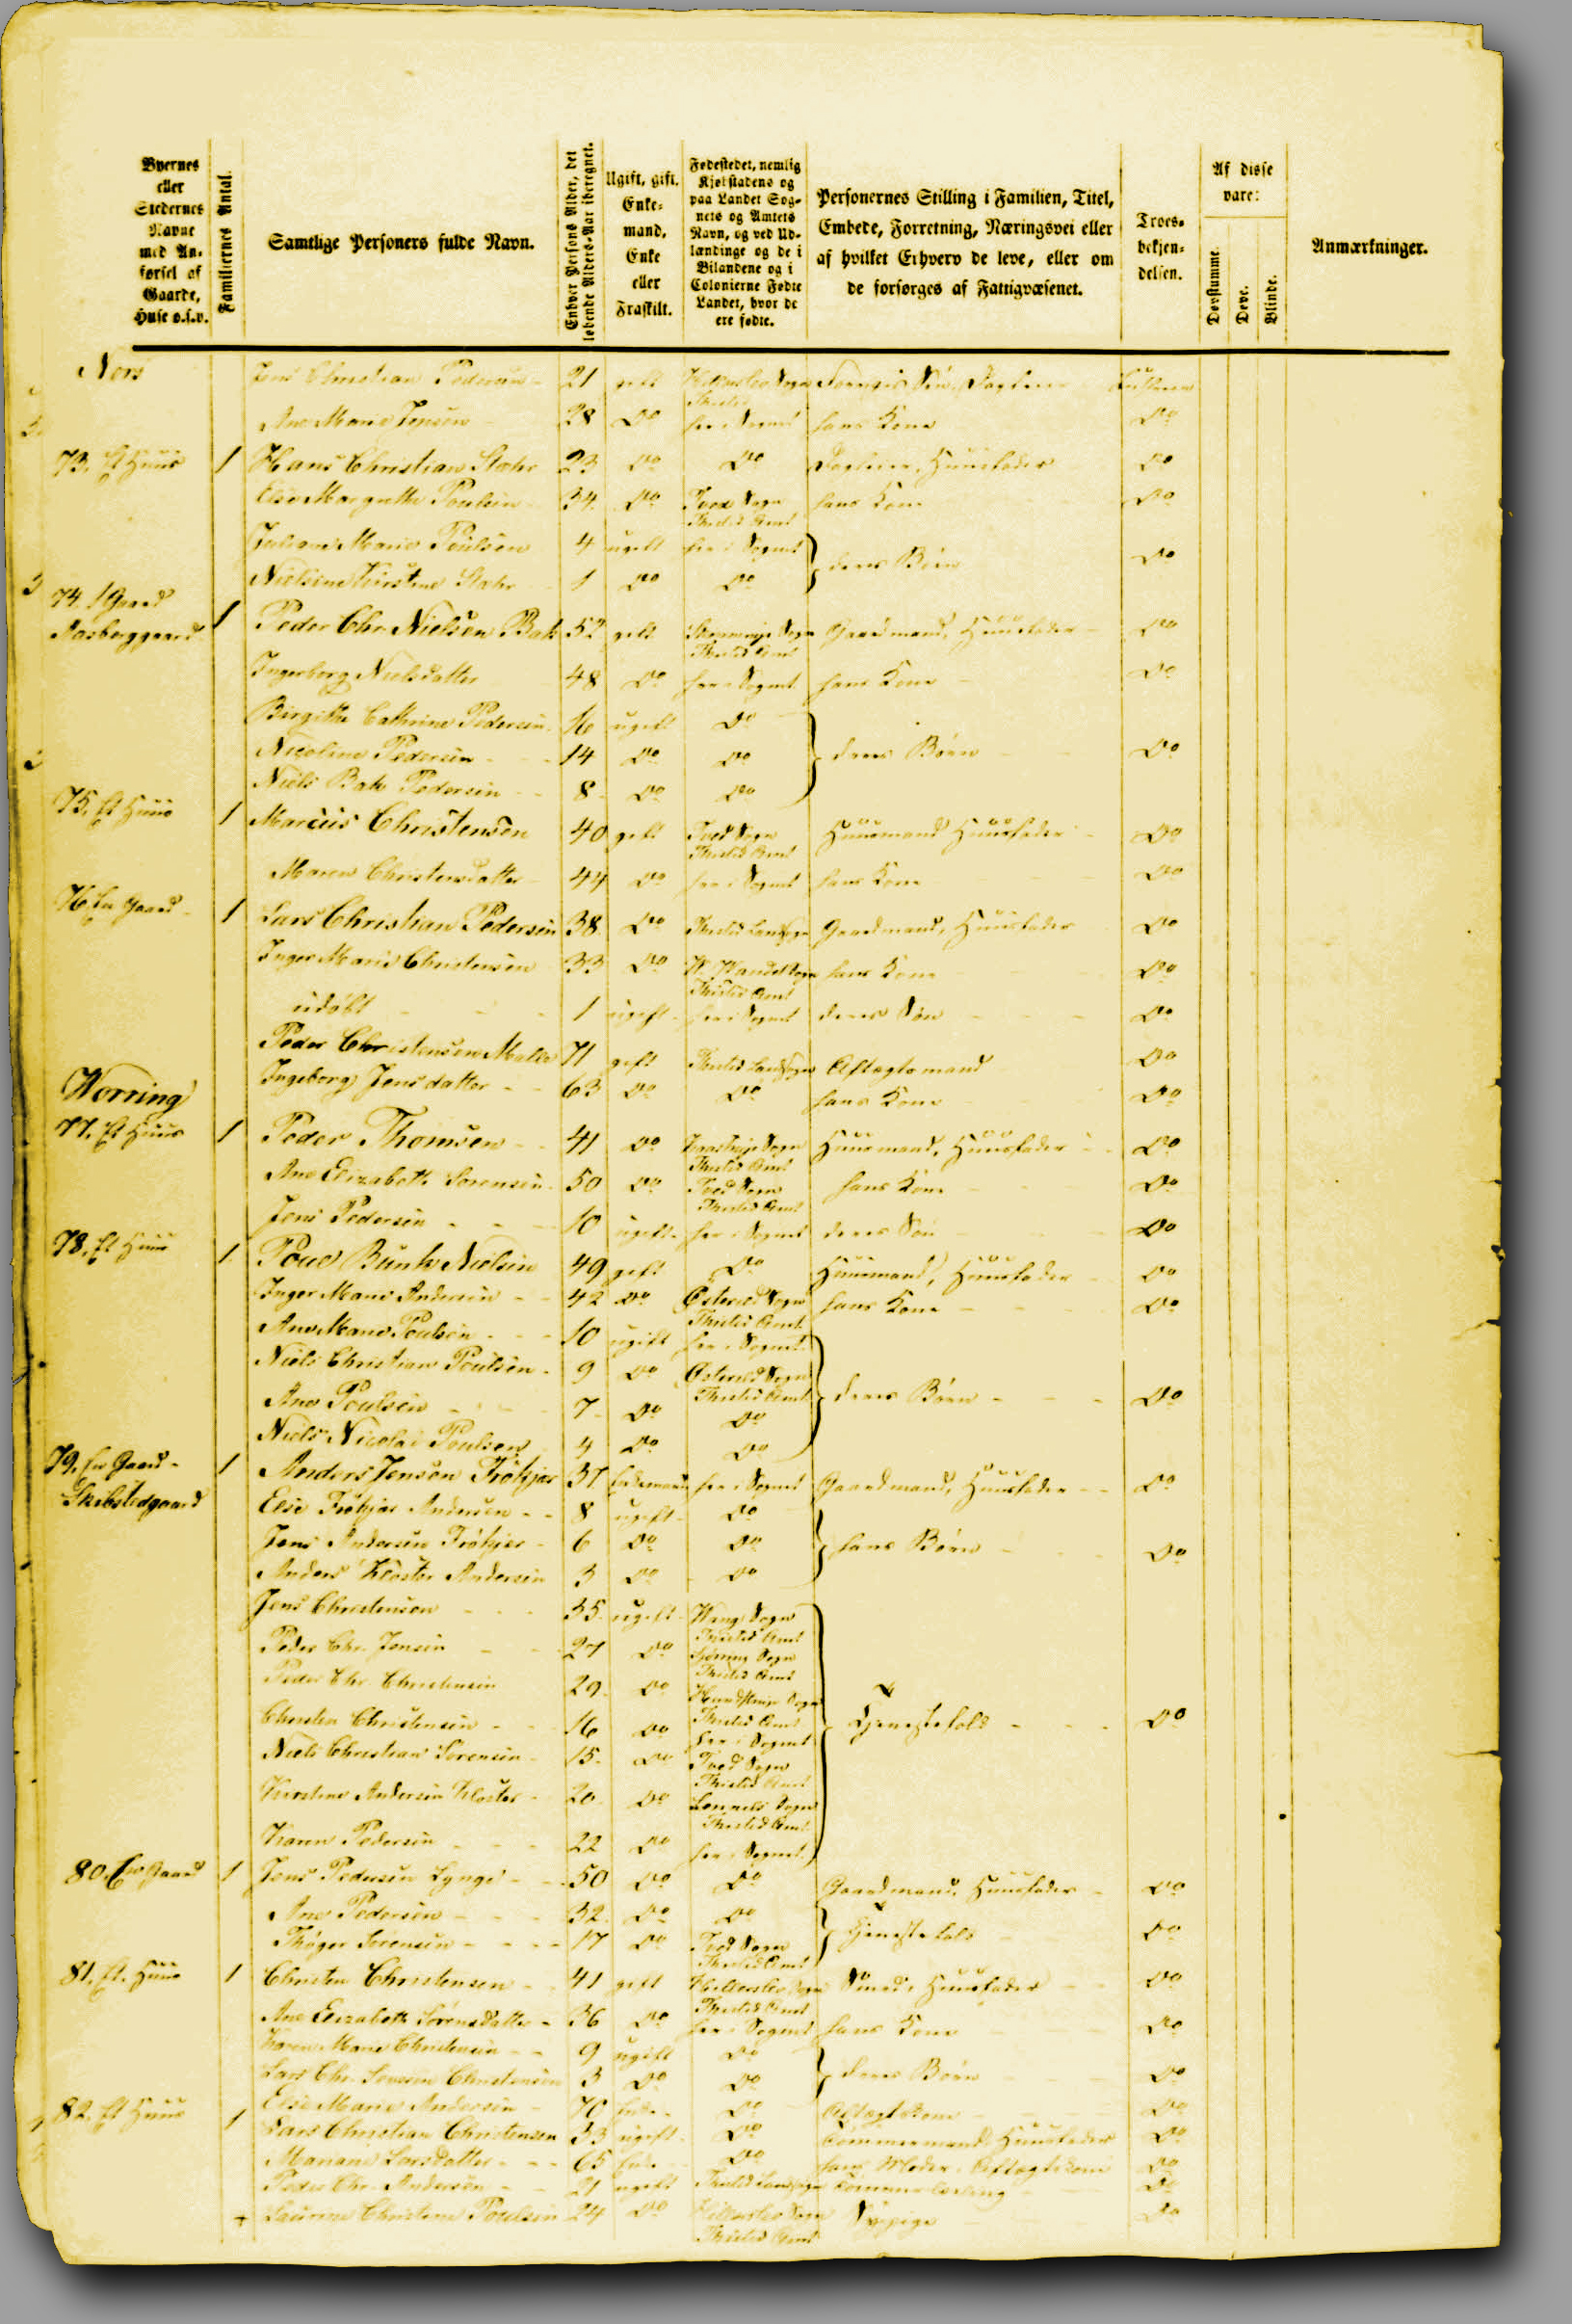 Byernes eller Stedernes Navne med Anførsel af Gaarde, Huse o.s.v.
Familiernes Antal.
Samtlige Personers fulde Navn.
Enhver Persons Alder, det løbende Alders-Aar iberegnet.
Ugift, gift, Enkemand, Enke eller Fraskilt.
Fødestedet, nemlig Kjøbstadens og paa Landet Sognets og Amtets Navn, og ved Udlændinge og de i Bilandene og i Colonierne Fødte Landet, hvor de ere fødte.
Personernes Stilling i Familien, Titel, Embede, Forretning, Næringsvei eller af hvilket Erhverv de leve, eller om de forsørges af Fattigvæsenet.
Troesbekjendelsen.
Af disse vare:
Døvstumme.
Døve.
Blinde.
Anmærkninger.
Nors Jens Christian Pedersen 21 gift
Ane Marie Jensen 28 Do her i Sognet hans Kone Do
73. Et Huus 1 Hans Christian 23 Do Do Huusfader Do
Else Margrethe Poulsen 34 Do Sogn Thisted Amt hans Kone Do
Marie Poulsen 4 ugift her i Sognet deres Børn Do
Nielsine Kirstine 1 Do Do
74. 1 Gaard 1 Peder Chr. Nielsen Bak 52 gift Sogn Thisted Amt Gaardmand, Huusfader Do
Ingerborg Nielsdatter 48 Do her i Sognet hans Kone Do
Birgithe Cathrine Pedersen 16 ugift Do
Nicoline Pedersen 14 Do Do deres Børn Do
Niels Bak Pedersen 8 Do Do
75. Et Huus 1 Marcus Christensen 40 gift Tved Sogn Thisted Amt Huusmand Huusfader Do
Maren Christensdatter 44 Do her i Sognet hans Kone Do
76. En Gaard 1 Lars Christian Pedersen 38 Do Thisted Landsogn Gaardmand, Huusfader Do
Inger Marie Christensen 33 Do Sogn Thisted Amt hans Kone Do
udøbt 1 ugift her i Sognet deres Søn Do
Peder Christensen 71 gift Thisted Landsogn Aftægtsmand Do
Ingeborg Jensdatter 63 Do Do hans Kone Do
Worring
77. Et Huus 1 Peder Thomsen 41 Do Sogn Thisted Amt Huusmand, Huusfader Do
Ane Elizabeth Sørensen 50 Do Tved Sogn Thisted Amt hans Kone Do
Jens Pedersen 10 ugift her i Sognet deres Søn Do
78. Et Huus 1 Poul Bunk Nielsen 49 gift Do Huusmand, Huusfader Do
Inger Marie Andersen 42 Do Østerild Sogn Thisted Amt hans Kone Do
Ane Marie Poulsen 10 ugift her i Sognet
Niels Christian Poulsen 9 Do Østerild Sogn Thisted Amt
Ane Poulsen 7 Do Do deres Børn Do
Niels Nicolai Poulsen 4 Do Do
79. En Gaard Skibstedgaard 1 Anders Jensen Frøkjær 37 Enkemand her i Sognet Gaardmand, Huusfader Do
Else Frøkjær Andersen 8 ugift Do
Jens Andersen Frøkjær 6 Do Do hans Børn Do
Anders Kloster Andersen 3 Do Do
Jens Christensen 35 ugift Wang Sogn Thisted Amt
Peder Chr. Jensen 27 Do Sjørring Sogn Thisted Amt
Peder Chr. Christensen 29 Do Hundstrup Sogn Thisted Amt
Christen Christensen 16 Do her i Sognet Tjenestefolk Do
Niels Christian Sørensen 15 Do Tved Sogn Thisted Amt
Kirstine Andersen Kloster 20 Do Sogn Thisted Amt
Karen Pedersen 22 Do her i Sognet
80. En Gaard 1 Jens Pedersen Lynge 50 Do Do Gaardmand, Huusfader Do
Ane Pedersen 32 Do Do
Thøger Sørensen 17 Do Tved Sogn Thisted Amt Tjenestefolk Do
81. Et Huus 1 Christen Christensen 41 gift Hillerslev Sogn Thisted Amt Smed, Huusfader Do
Ane Elizabeth Sørensdatter 36 Do her i Sognet hans Kone Do
Karen Marie Christensen 9 ugift Do
Lars Chr. Christensen 3 Do Do deres Børn Do
Else Marie Andersen 70 Enke Do Aftægtskone Do
82. Et Huus 1 Lars Christian Christensen 33 ugift Do Tømmermand, Huusfader Do
Mariane Larsdatter 65 Enke Do hans Moder, Aftægtskone Do
Peder Chr. Andersen 21 ugift Thisted Landsogn Do
Laurine Christine Poulsen 24 Do Hillerslev Sogn Thisted Amt Do